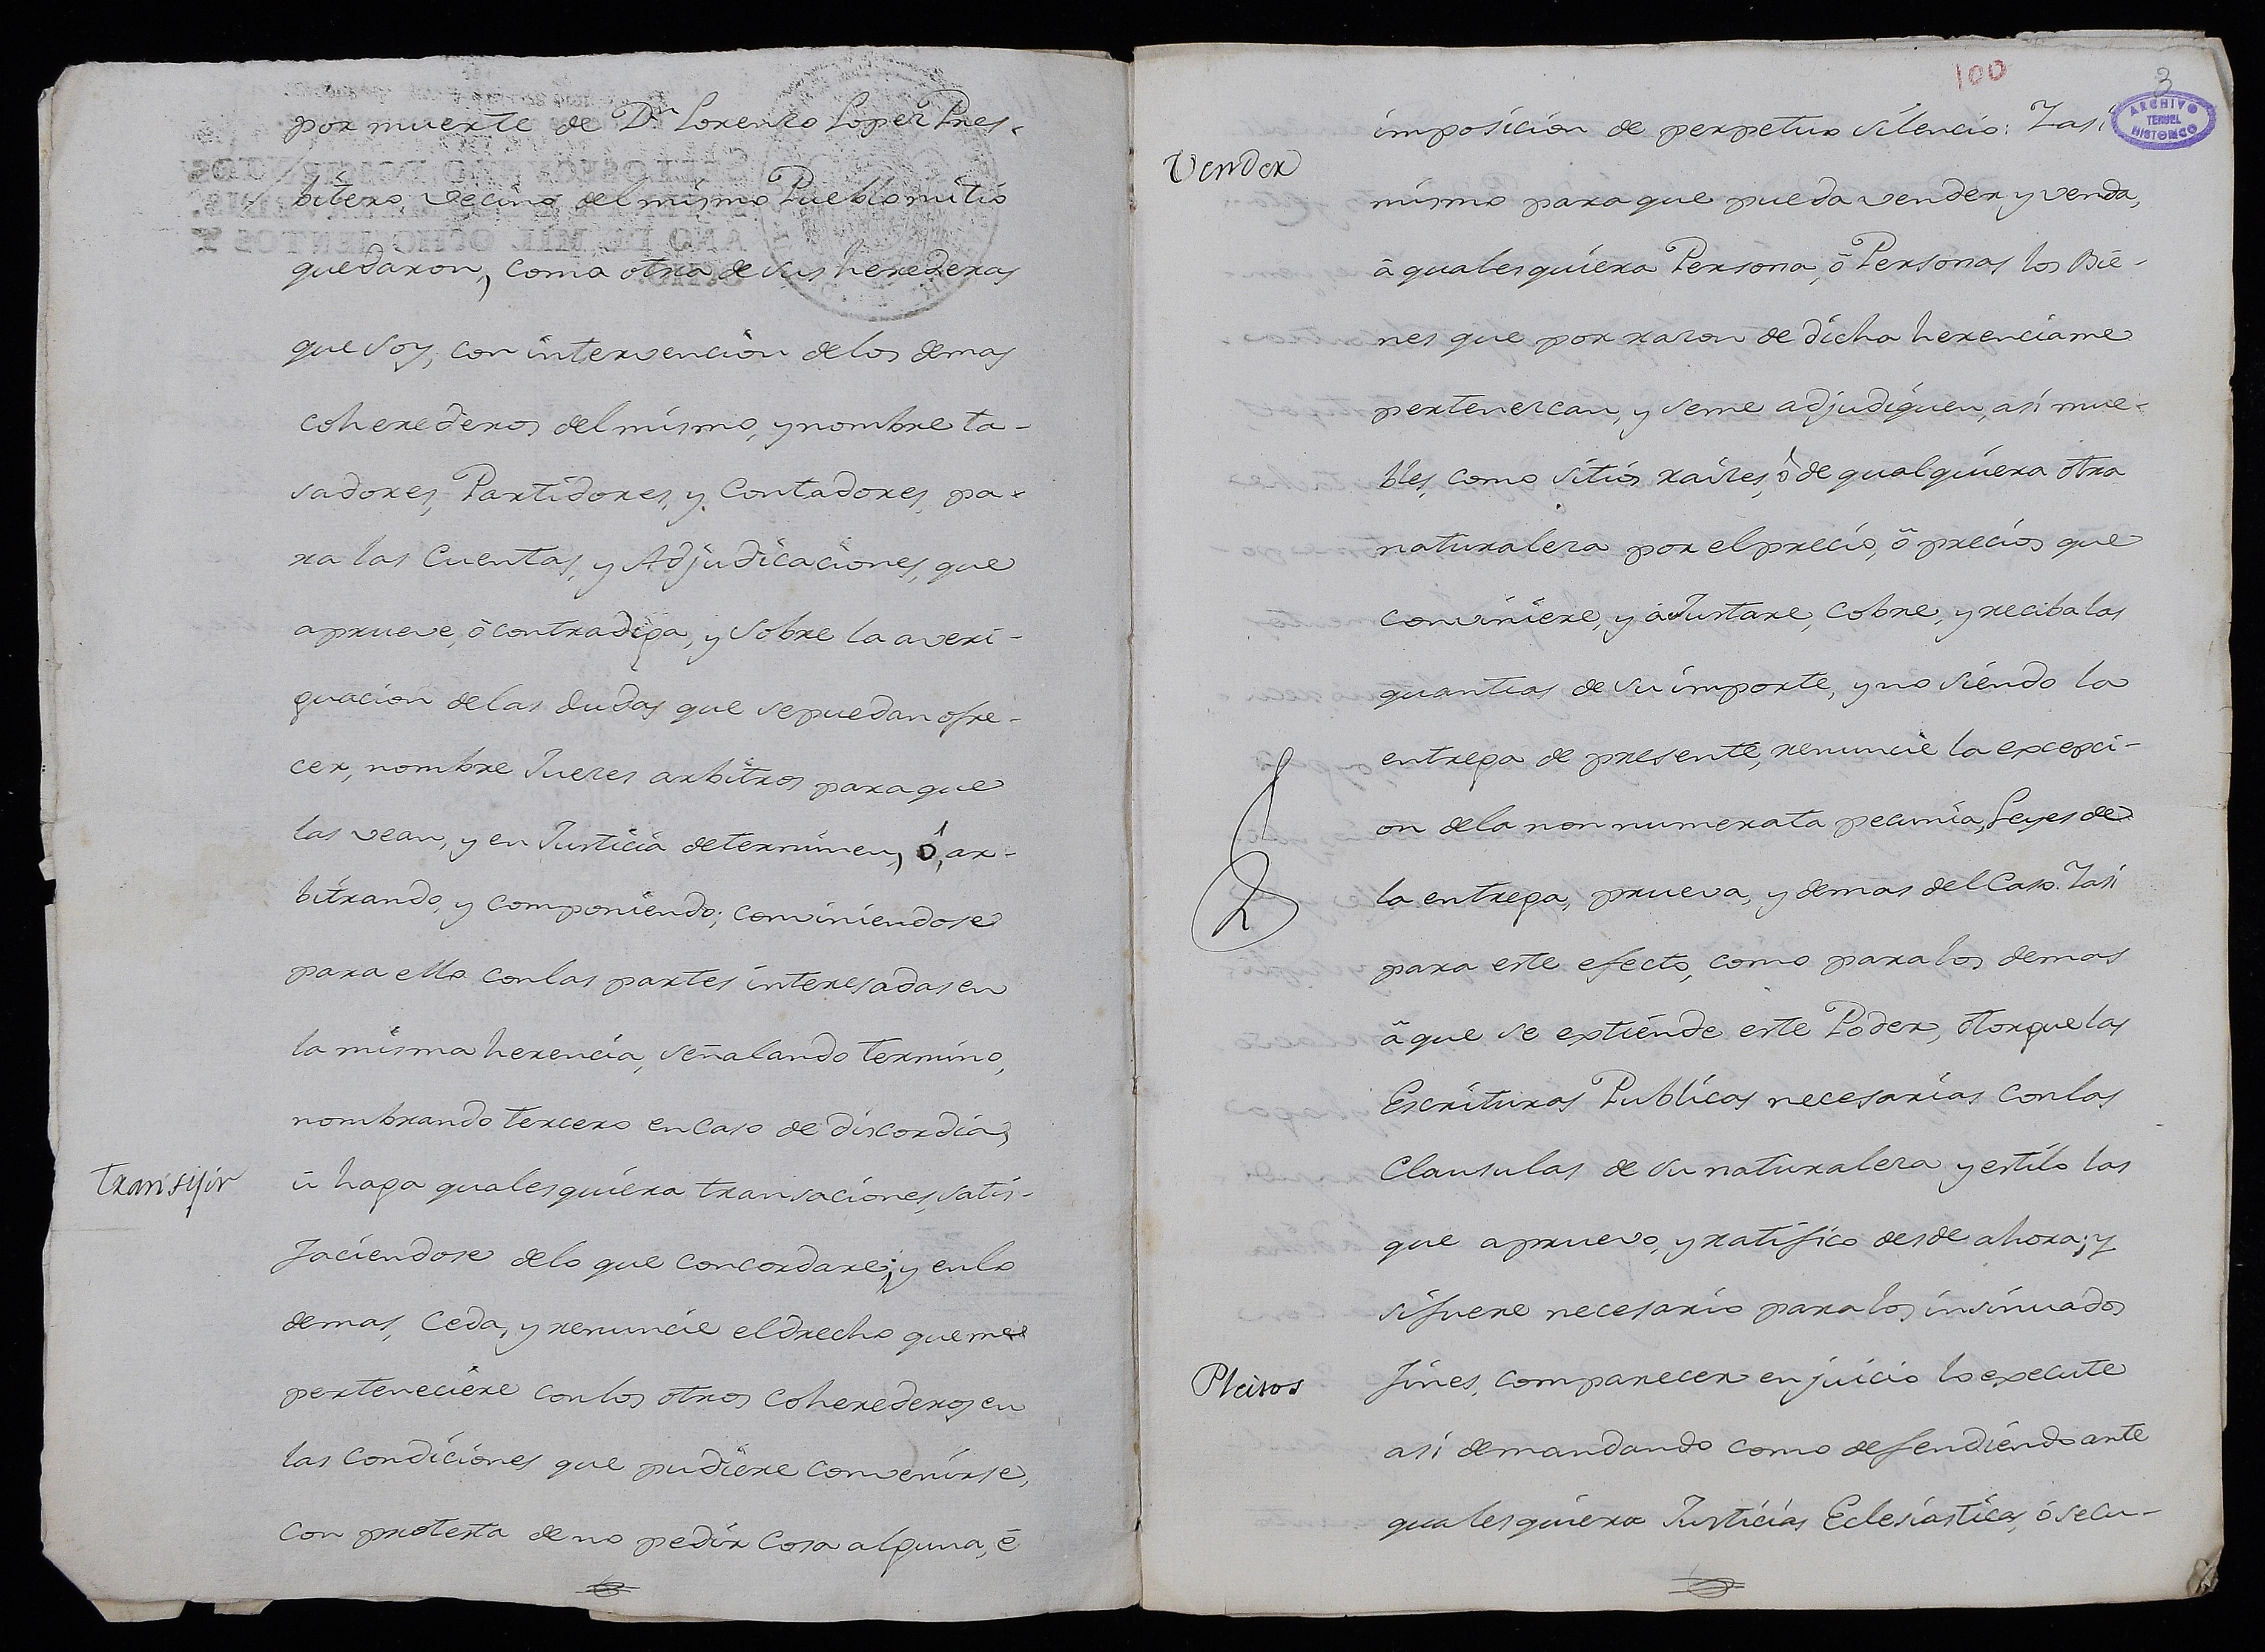 por muerte de Dn. Lorenzo Lopez Pres-
bitero, vecino del mismo Pueblo mitio
quedaron, como otra de sus herederas
que soy, con intervencion delos demas
coherederos del mismo, y nombre ta-
sadores, Partidores, y Contadores, pa-
ra las Cuentas, y Adjudicaciones, que
aprueve, ô contradiga, y sobre la averi-
guacion delas dudas que sepuedan ofre-
cer, nombre Jueces arbitros paraque
las vean, y en Justicia determinen, ó, ar-
bitrando, y componiendo; conviniendose
para ello conlas partes interesadas en
la misma herencia, señalando termino,
nombrando tercero encaso de discordia,
Transigir
ù haga qualesquiera transaciones, satis-
faciendose delo que concordare; y enlo
demas, ceda, y renuncie el drecho que me
perteneciere conlos otros coherederos en
las condiciones que pudiere convenirse,
con protesta deno pedir cosa alguna, ê
100
3
ARCHIVO
TERUEL
HISTORICO
imposicion de perpetuo silencio: Yasi
Vender
mismo paraque pueda vender y venda,
â qualesquiera Persona, ô Personas los Bie-
nes que por razon de dicha herencia me
pertenezcan, y seme adjudiquen, asi mue-
bles, como sitios raizes, ó de qualquiera otra
naturaleza por el precio, ô precios que
conviniere, y aJustare, cobre, y reciba las
quantias de su importe, y no siendo la
entrega de presente, renuncie la excepci-
on dela non numerata pecunia, Leyes de
la entrega, prueva, y demas del Caso. Yasi
para este efecto, como para los demas
â que se extiende este Poder, otorgue las
Escrituras Publicas necesarias conlas
Clausulas de su naturaleza y estilo las
que apruevo, y ratifico desde ahora; y
sifuere necesario para los insinuados
Pleitos
fines, comparecer en juicio lo execute
asi demandando como defendiendo ante
qualesquiera Justicias Eclesiasticas, ó secu-